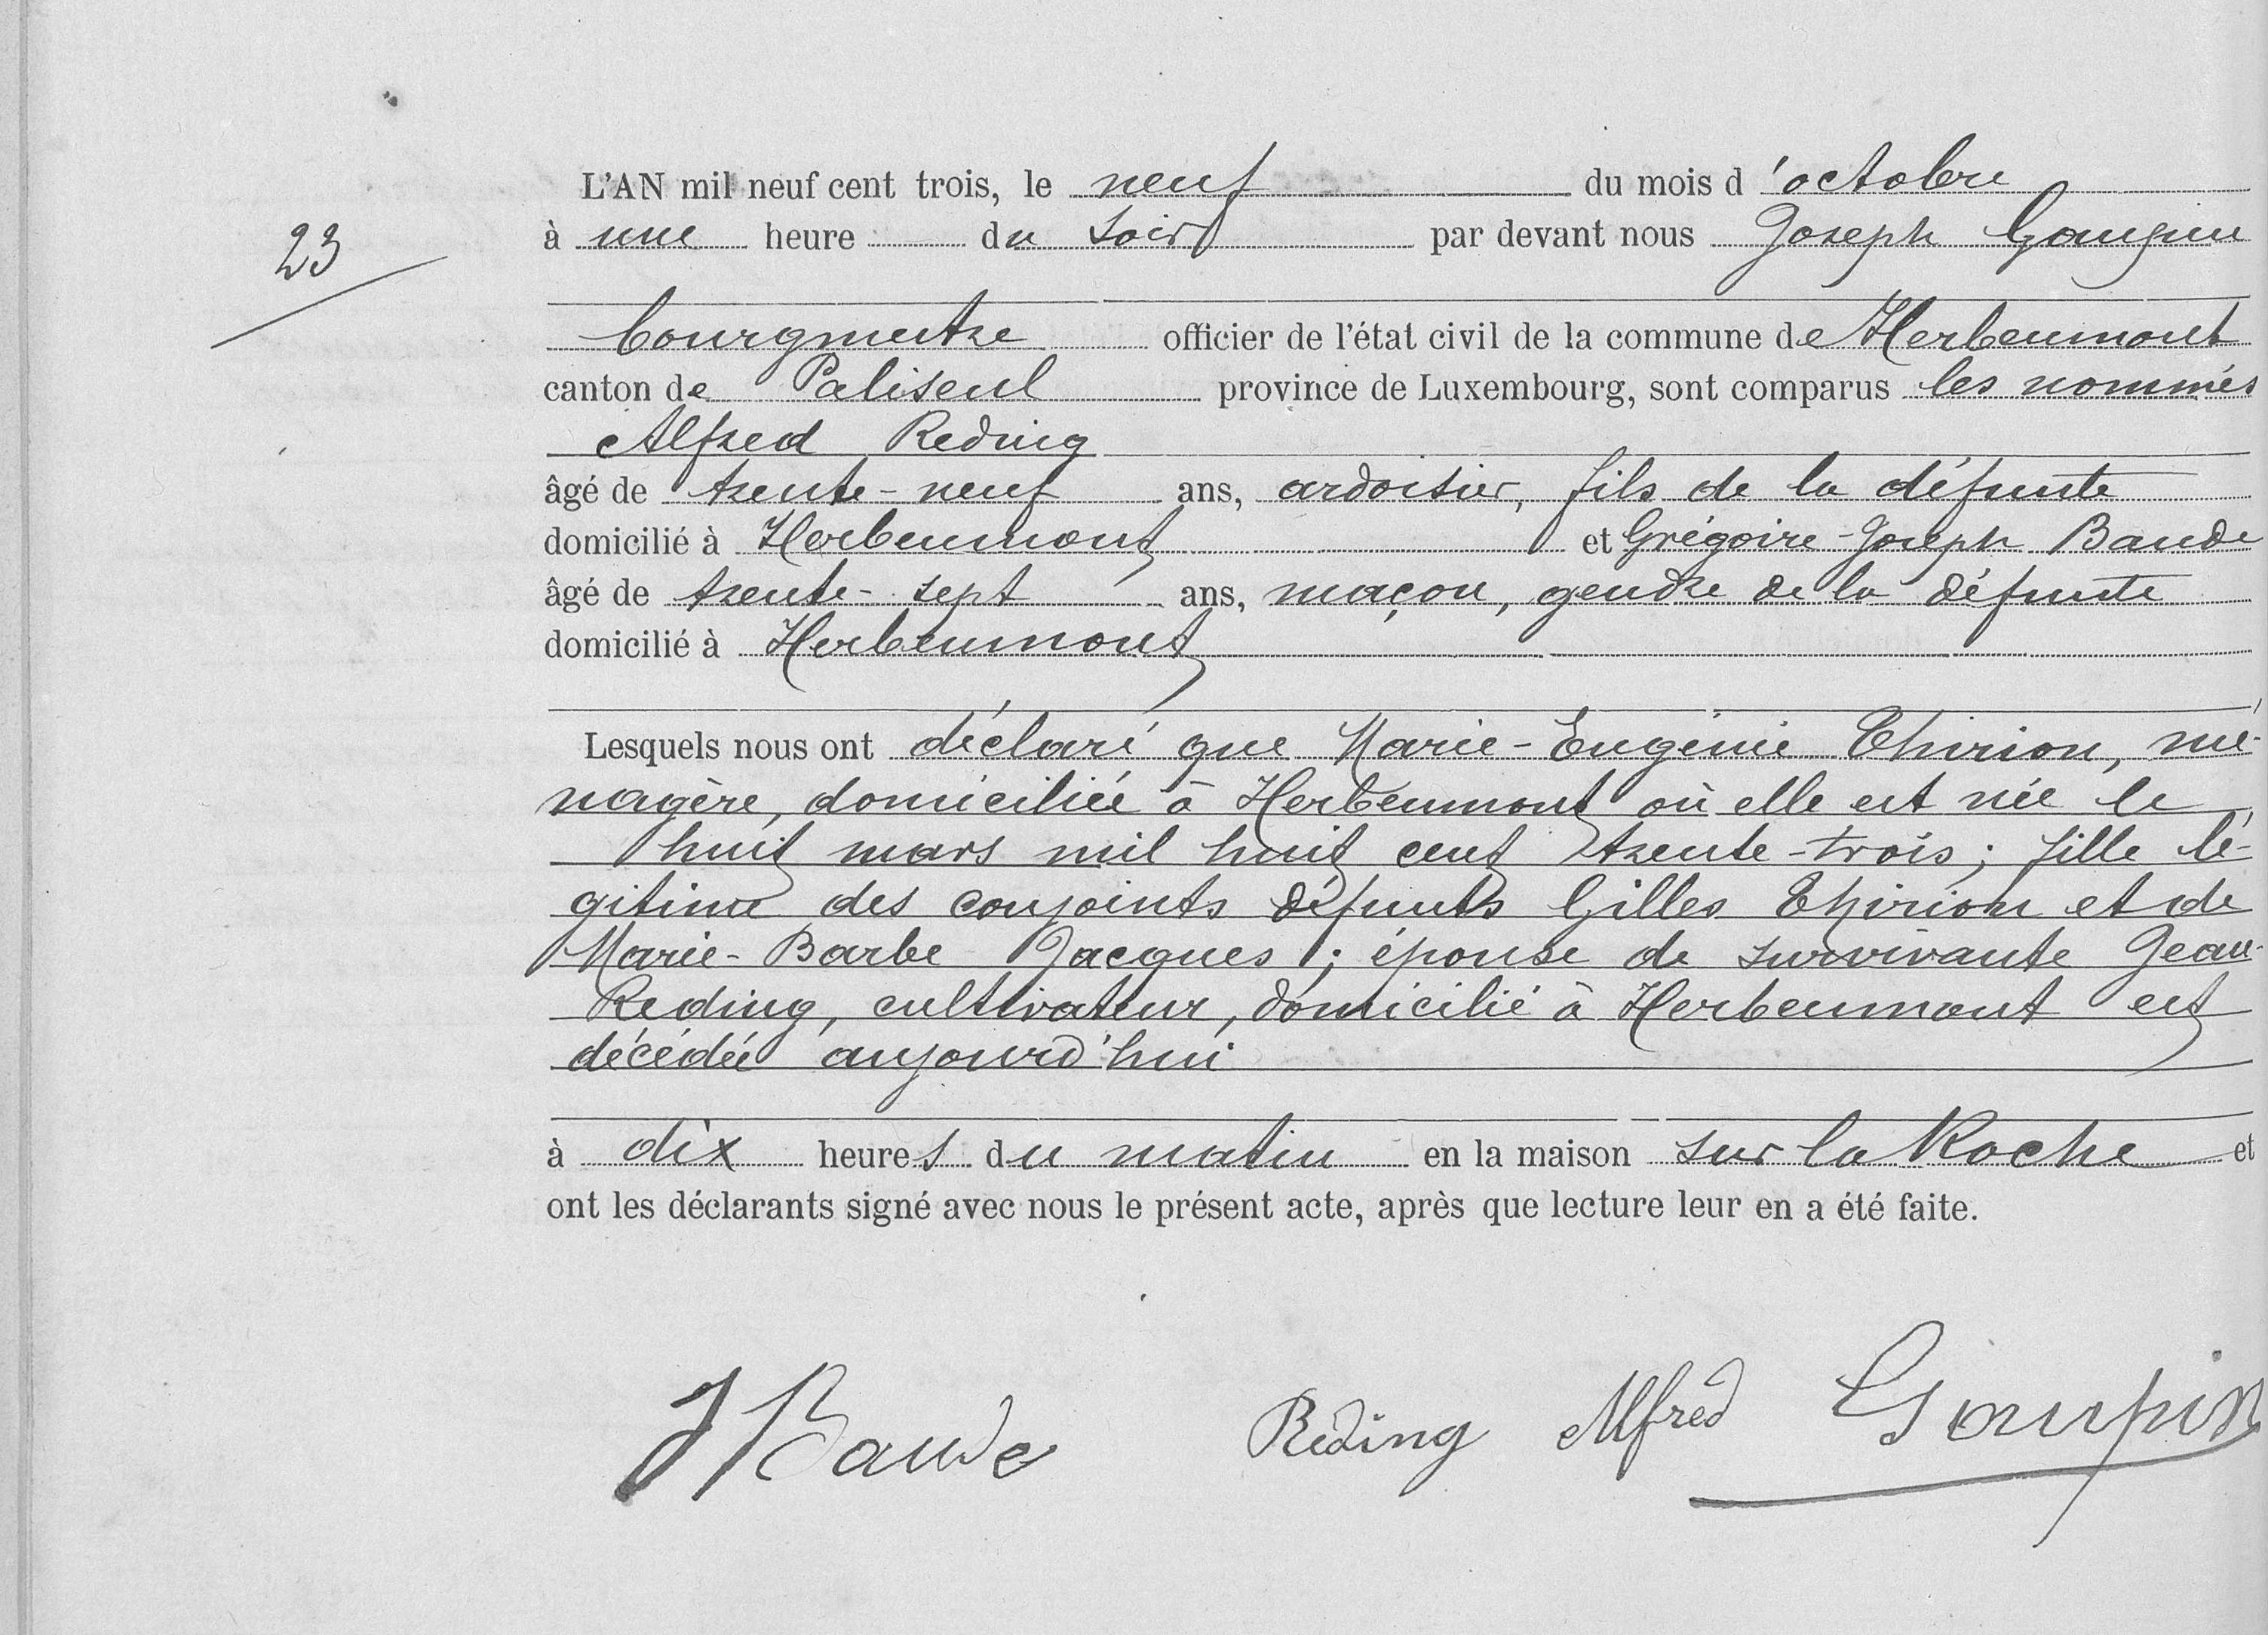 L'AN mil neuf cent trois, le neuf du mois d'octobre
23
à une heure du soir par devant nous Joseph Goupin
bourgmestre officier de l'état civil de la commune de Herbeumont
canton de Paliseul province de Luxembourg, sont comparus les nommés
Alfred Reding
âgé de trente-neuf ans, ardoisier, fils de la défunte
domicilié à Herbeumont et Grégoire-Joseph Baude
âgé de trente-sept ans, maçon, gendre de la défunte
domicilié à Herbeumont
Lesquels nous ont déclaré que Marie-Eugénie Thirion, mé-
nagère, domiciliée à Herbeumont où elle est née le
huit mars mil huit cent trente-trois; fille lé-
gitime des conjoints défunts Gilles Thirion et de
Marie-Barbe Jacques; épouse de survivante Jean
Reding, cultivateur, domicilié à Herbeumont est
décédée aujourd'hui
à dix heures du matin en la maison sur la Roche et
ont les déclarants signé avec nous le présent acte, après que lecture leur en a été faite.
J Baude Reding Alfred Goupin